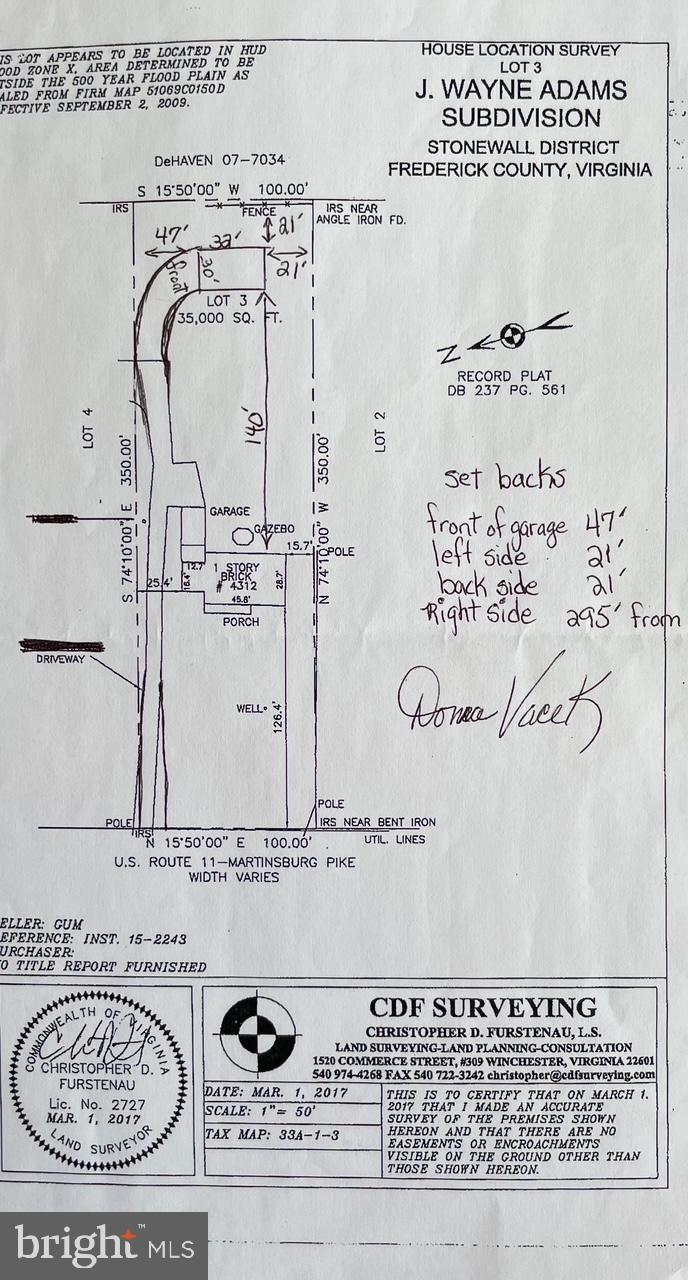 IS LOT APPEARS TO BE LOCATED IN HUD
OOD ZONE X, AREA DETERMINED TO BE
TSIDE THE 500 YEAR FLOOD PLAIN AS
ALED FROM FIRM MAP 51069C0150D
FECTIVE SEPTEMBER 2, 2009.
HOUSE LOCATION SURVEY
LOT 3
J. WAYNE ADAMS
SUBDIVISION
STONEWALL DISTRICT
FREDERICK COUNTY, VIRGINIA
DeHAVEN 07-7034
S 15°50'00" W 100.00'
IRS
FENCE
IRS NEAR
ANGLE IRON FD.
47'
32'
21'
21'
front
30'
LOT 3
35,000 SQ. FT.
140'
N
RECORD PLAT
DB 237 PG. 561
LOT 4
LOT 2
S 74°10'00" E 350.00'
N 74°10'00" W 350.00'
GARAGE
GAZEBO
15.7'
POLE
12.7'
16.4'
1 STORY
BRICK
# 4312
28.7'
25.4'
45.8'
PORCH
DRIVEWAY
WELL
126.4'
set backs
front of garage 47'
left side 21'
back side 21'
Right side 295' from
Donna Vacek
POLE
POLE
IRS
IRS NEAR BENT IRON
N 15°50'00" E 100.00'
UTIL. LINES
U.S. ROUTE 11-MARTINSBURG PIKE
WIDTH VARIES
ELLER: GUM
EFERENCE: INST. 15-2243
URCHASER:
O TITLE REPORT FURNISHED
COMMONWEALTH OF VIRGINIA
CHRISTOPHER D.
FURSTENAU
Lic. No. 2727
MAR. 1, 2017
LAND SURVEYOR
CDF SURVEYING
CHRISTOPHER D. FURSTENAU, L.S.
LAND SURVEYING-LAND PLANNING-CONSULTATION
1520 COMMERCE STREET, #309 WINCHESTER, VIRGINIA 22601
540 974-4268 FAX 540 722-3242 christopher@cdfsurveying.com
DATE: MAR. 1, 2017
SCALE: 1"= 50'
TAX MAP: 33A-1-3
THIS IS TO CERTIFY THAT ON MARCH 1,
2017 THAT I MADE AN ACCURATE
SURVEY OF THE PREMISES SHOWN
HEREON AND THAT THERE ARE NO
EASEMENTS OR ENCROACHMENTS
VISIBLE ON THE GROUND OTHER THAN
THOSE SHOWN HEREON.
bright™ MLS